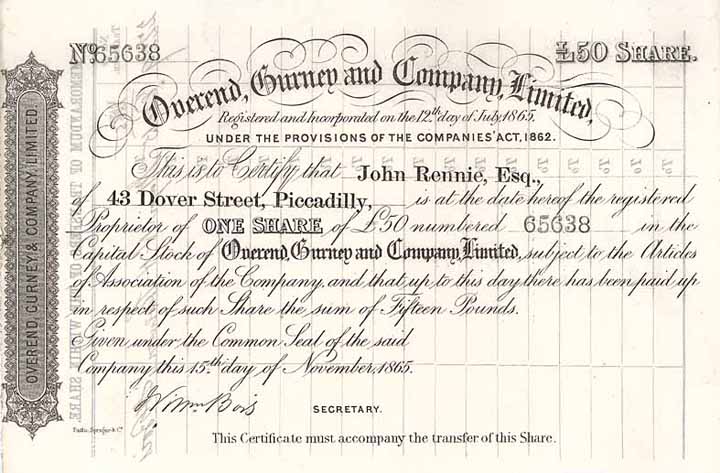 No. 65638
£50 SHARE.
Overend, Gurney and Company, Limited,
Registered and Incorporated on the 12th day of July 1865,
UNDER THE PROVISIONS OF THE COMPANIES' ACT, 1862.
This is to Certify that John Rennie, Esq.,
of 43 Dover Street, Piccadilly, is at the date hereof the registered
Proprietor of ONE SHARE of £50 numbered 65638 in the
Capital Stock of Overend, Gurney and Company, Limited, subject to the Articles
of Association of the Company, and that up to this day there has been paid up
in respect of such Share the sum of Fifteen Pounds.
Given under the Common Seal of the said
Company this 15th day of November, 1865.
SECRETARY.
This Certificate must accompany the transfer of this Share.
OVEREND, GURNEY & COMPANY, LIMITED